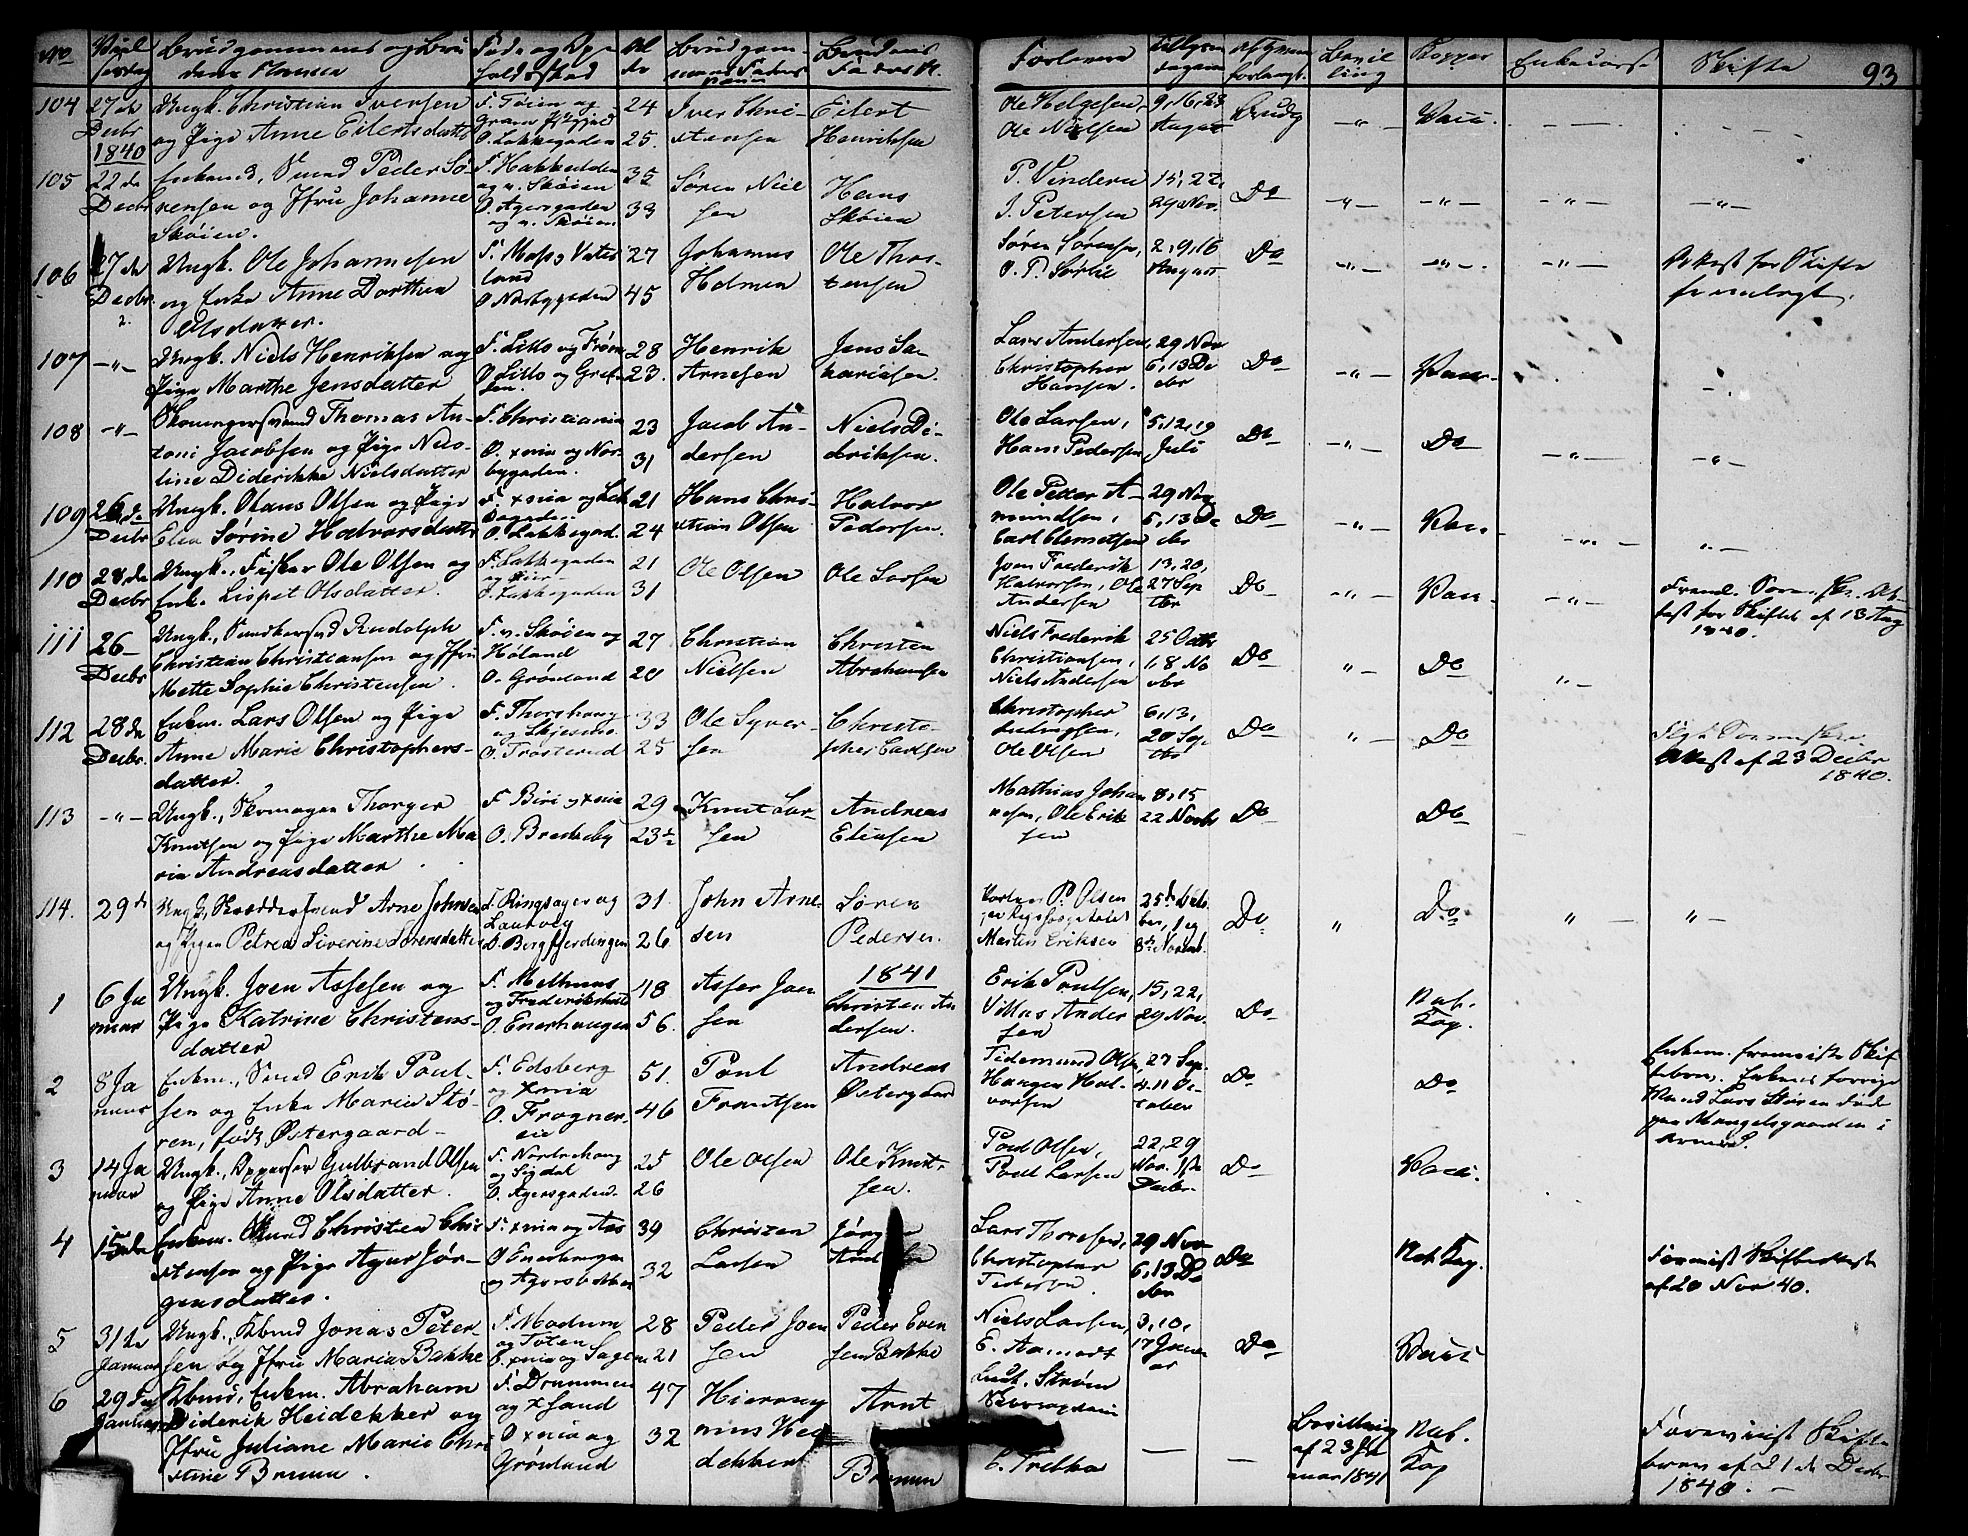 No Viel sesdag Brudgommens og Bru dens Navnen Føde og Op holdsstad Al der Brudgom mens Faders Navn Brudens Faders N. Forlovere Tillysn dagene Bevil ling Kopper Enkecaars Skifte 93
104 27de Decbr Ungk. Christian Iversen og Pige Anne Eilertsdatter F. Tøien og O. Lakkegaden 24 25. Iver Chri- stensen Eilert Henriksen Ole Helgesen, Ole Nielsen 9, 16, 23 August Brudg -"- Vacc.
1840
105 22de Decbr Enkemd, Smed Peder Sø- rensen og Jfru Johanne Skøien. og n. Skøien O. Agersgaden og n. Skøien. 35 33 Søren Niel sen Hans Skøien P. Vindern J. Petersen 15, 22, 29 Nov. Do -"- -"- -"- -"-
106 27de Decbr Ungk. Ole Johannesen og Enke Anne Dorthea Olsdatter. F. Moss, Vater land O Norbygaden 27 45 Johannes Holmen Ole Thos- tensen Søren Sørensen, O. P. Sørlie 2, 9, 16 August Do -"- -"- -"- Attest for Skifte fremlagt.
107 -"- Ungk. Niels Henriksen og Pige Marthe Jensdatter F. Lillo og Frøn O. Lillo og Gref sen. 28 23. Henrik Arnesen Jens Za- kariasen. Lars Andersen, Christopher Hansen. 29 Nov 6, 13 De cbr Do -"- Vacc.
108 -"- Skomagersvend Thomas An- toni Jacobsen og Pige Nico- line Diderikke Nielsdatter F. Christiania O. xnia og Nor- bygaden. 23 31 Jacob An- dersen Niels Di- deriksen. Ole Larsen, Hans Pedersen 5, 12, 19 Juli Do -"- Do -"- -"-
109 26de Decbr Ungk. Olaus Olsen og Pige Elen Sørine Halvorsdatter F. xnia og Lak kegaden O. Lakkegad. 21 24 Hans Chri- stian Olsen Halvor Pedersen. Ole Petter A- mundsen, Carl Clemetsen 29 Nov 6, 13 De cbr Do -"- Vacc. -"- -"-
110 28de Decbr Ungk., Fisker Ole Olsen og Enk. Lispet Olsdatter. F. Lakkegaden O. Lakkegaden 21 31 Ole Olsen Ole Larsen Joen Frederik Halvorsen, Ole Andersen 13, 20, 27 Sep tbr Do -"- Vacc. -"- Freml. Soren Skr. At- test for Skiftet af 13 Aug 1840.
111 26 Decbr Ungk., Rudolph Christian Christiansen og Jfru Mette Sophie Christensen. F. n. Skøien og Høland O. Grønland 27 20 Christian Nielsen Christen Abrahamsen Niels Frederik Christiansen, Niels Andersen 25 Octbr 1, 8 No vbr Do -"- Do -"-
112 28de Decbr. Enkem. Lars Olsen og Pige Anne Marie Christophers- datter. F. Thorshaug og Skjersmo O. Trosterud 33 25 Ole Syver- sen Christo- pher Carlsen Christopher Ludvigsen, Ole Olsen 6, 13, 20 Sep tbr Do -"- Do Attest af 23 Decbr 1840.
113 -"- Ungk., Skomager Thorger Knutsen og Pige Marthe Ma ria Andreasdatter. F. Biri og xnia O. Brekkeby 29 23½ Knut Lar- sen Andreas Eliasen Mathias Johan nesen, Ole Erik sen 8, 15 22 Novbr Do Do
114. 29de Ungk, Skrædersvend Arne Johnsen og Pigen Petrea Siverine Sørensdatter F. Ringsager og Laurvig O. Bergfjerdingen 31. 26 John Arne- sen Søren Pedersen. P. Olsen Martin Eriksen 25de Octo- ber, 1 og 8de Novemb. Do " Do " - " -
1841
1 6 Ja nuar Ungk. Joen Assersen og Pige Katrine Christens- datter F. Melhuus og Frederikshald O. Enerhaugen 48 56. Asser Joen sen Christen An dersen. Erik Poulsen, Villas Ander sen 15, 22, 29 Nov. Do Nat. Kop.
2 8 Ja nuar Enkem., Smed Erik Poul- sen og Enke Maria Stø- ren, født Østergaard- F. Edsberg og xnia O. Frogner- eie 51. 46 Poul Frantsen Andreas Østergaard Tidemand Olsen, Haagen Hal- vorsen 27 Sep. 4. 11 Oc- tober Do Do Enkem. fremviste Skif tebrev. Enkens forrige Mand Lars Støren døde paa Mangelsgaarden i
3 14 Ja nuar Ungk., Opparser Gulbrand Olsen og Pige Anne Olsdatter. F. Norderhoug og Sigdal O. Agersgaden. 25 26 Ole Olsen Ole Knut- sen. Poul Olsen, Poul Larsen 22, 29 Nov. 1ste Decbr. Do Vacc.
4 15de Enkem. Smed Christen Chri stensen og Pige Agnæ Jør- gensdatter. F. xnia og Aas O Enerhaugen og Agersbakken 39 32 Christen Larsen Jørgen Lars Thoresen, Christopher Pedersen. 29 Nov 6, 13 De cbr Do Nat Kop. Forevist Skifteattest af 20 Nov 40.
5 31te Januar Ungk., Jonas Peter- sen og Jfru Maria Bakke F. Modum og Toten O. xnia og Sagene 28 21 Peder Joen sen Peder Even sen Bakke Niels Larsen, E. Aamodt 3, 10, 17 Janu ar Do Vacc
6 29de Januar Enkem. Abraham Diderik Heidekker og Jfru Juliane Marie Chri stine Bruun. F. Drammen og xsand O xnia og Grønland 47 32 Hierony mus Hei dekker Arnt Bruun Lieut. Strøm C. Trebka - - Bevilling af 23 Ja nuar 1841 Nat. Kop Forevist Skifte brev af 21de Decbr 1840. -